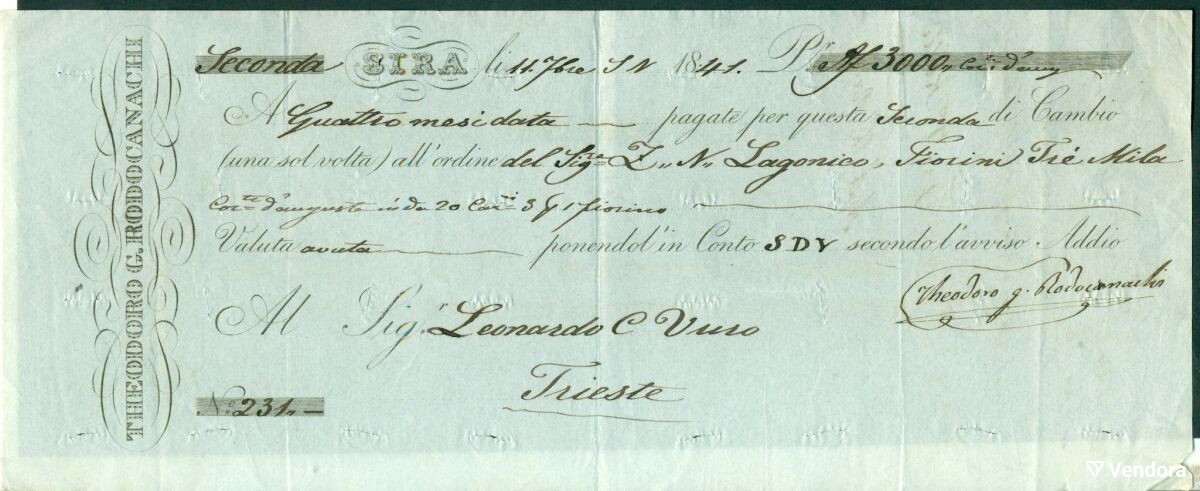 THEODORO G. RODOCANACHI
Seconda SIRA li 11. 7bre S N 1841. Pr. Af 3000,,
A Quattro mesi data pagate per questa Seconda di Cambio
(una sol volta) all'ordine del Sigre Z,, N,, Lagonico, Fiorini Tré Mila
d'augusto in da 20 Car.ni 3 1 fiorino
Valuta avuta ponendol'in Conto S D V secondo l'avviso Addio
Theodoro g. Rodocanachi
Al Sigr. Leonardo C Vuro
Trieste
No. 231,,
Vendora